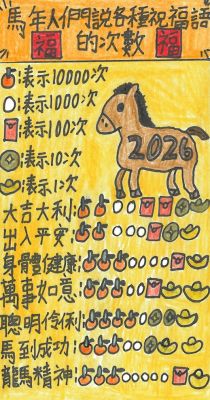 馬年人們說各種祝福語
福 的次數 福
:表示10000次
:表示1000次
:表示100次
:表示10次
:表示1次
2026
大吉大利:
出入平安:
身體健康:
萬事如意:
聰明伶俐:
馬到成功:
龍馬精神: